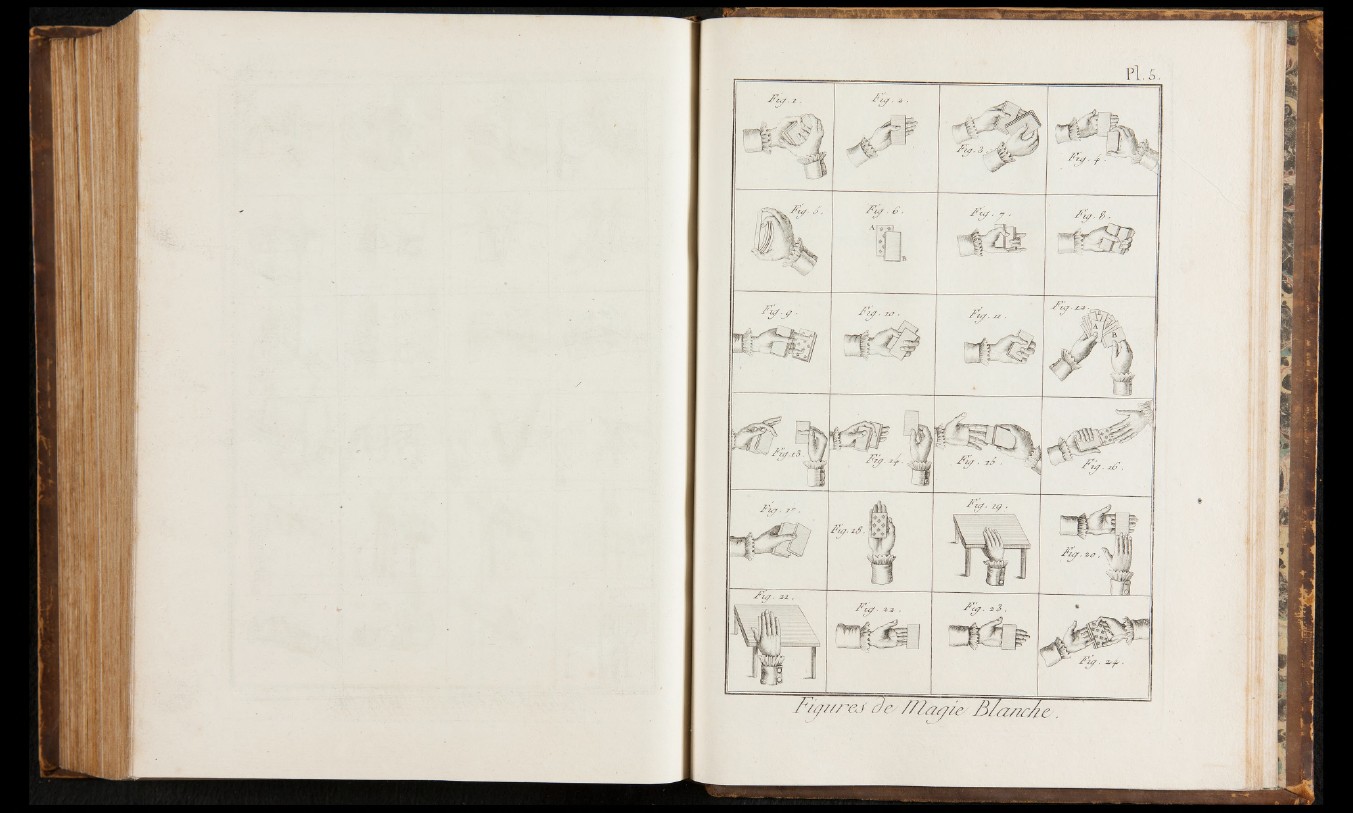 Pl. 5.
Fig. 1.
Fig. 2.
Fig. 3.
Fig. 4.
Fig. 5.
Fig. 6.
A
B
Fig. 7.
Fig. 8.
Fig. 9.
Fig. 10.
Fig. 11.
Fig. 12.
A
B
Fig. 13
Fig. 14
Fig. 15.
Fig. 16.
Fig. 17.
Fig. 18.
Fig. 19.
Fig. 20.
Fig. 21.
Fig. 22.
Fig. 23.
Fig. 24.
Figures de Magie Blanche.